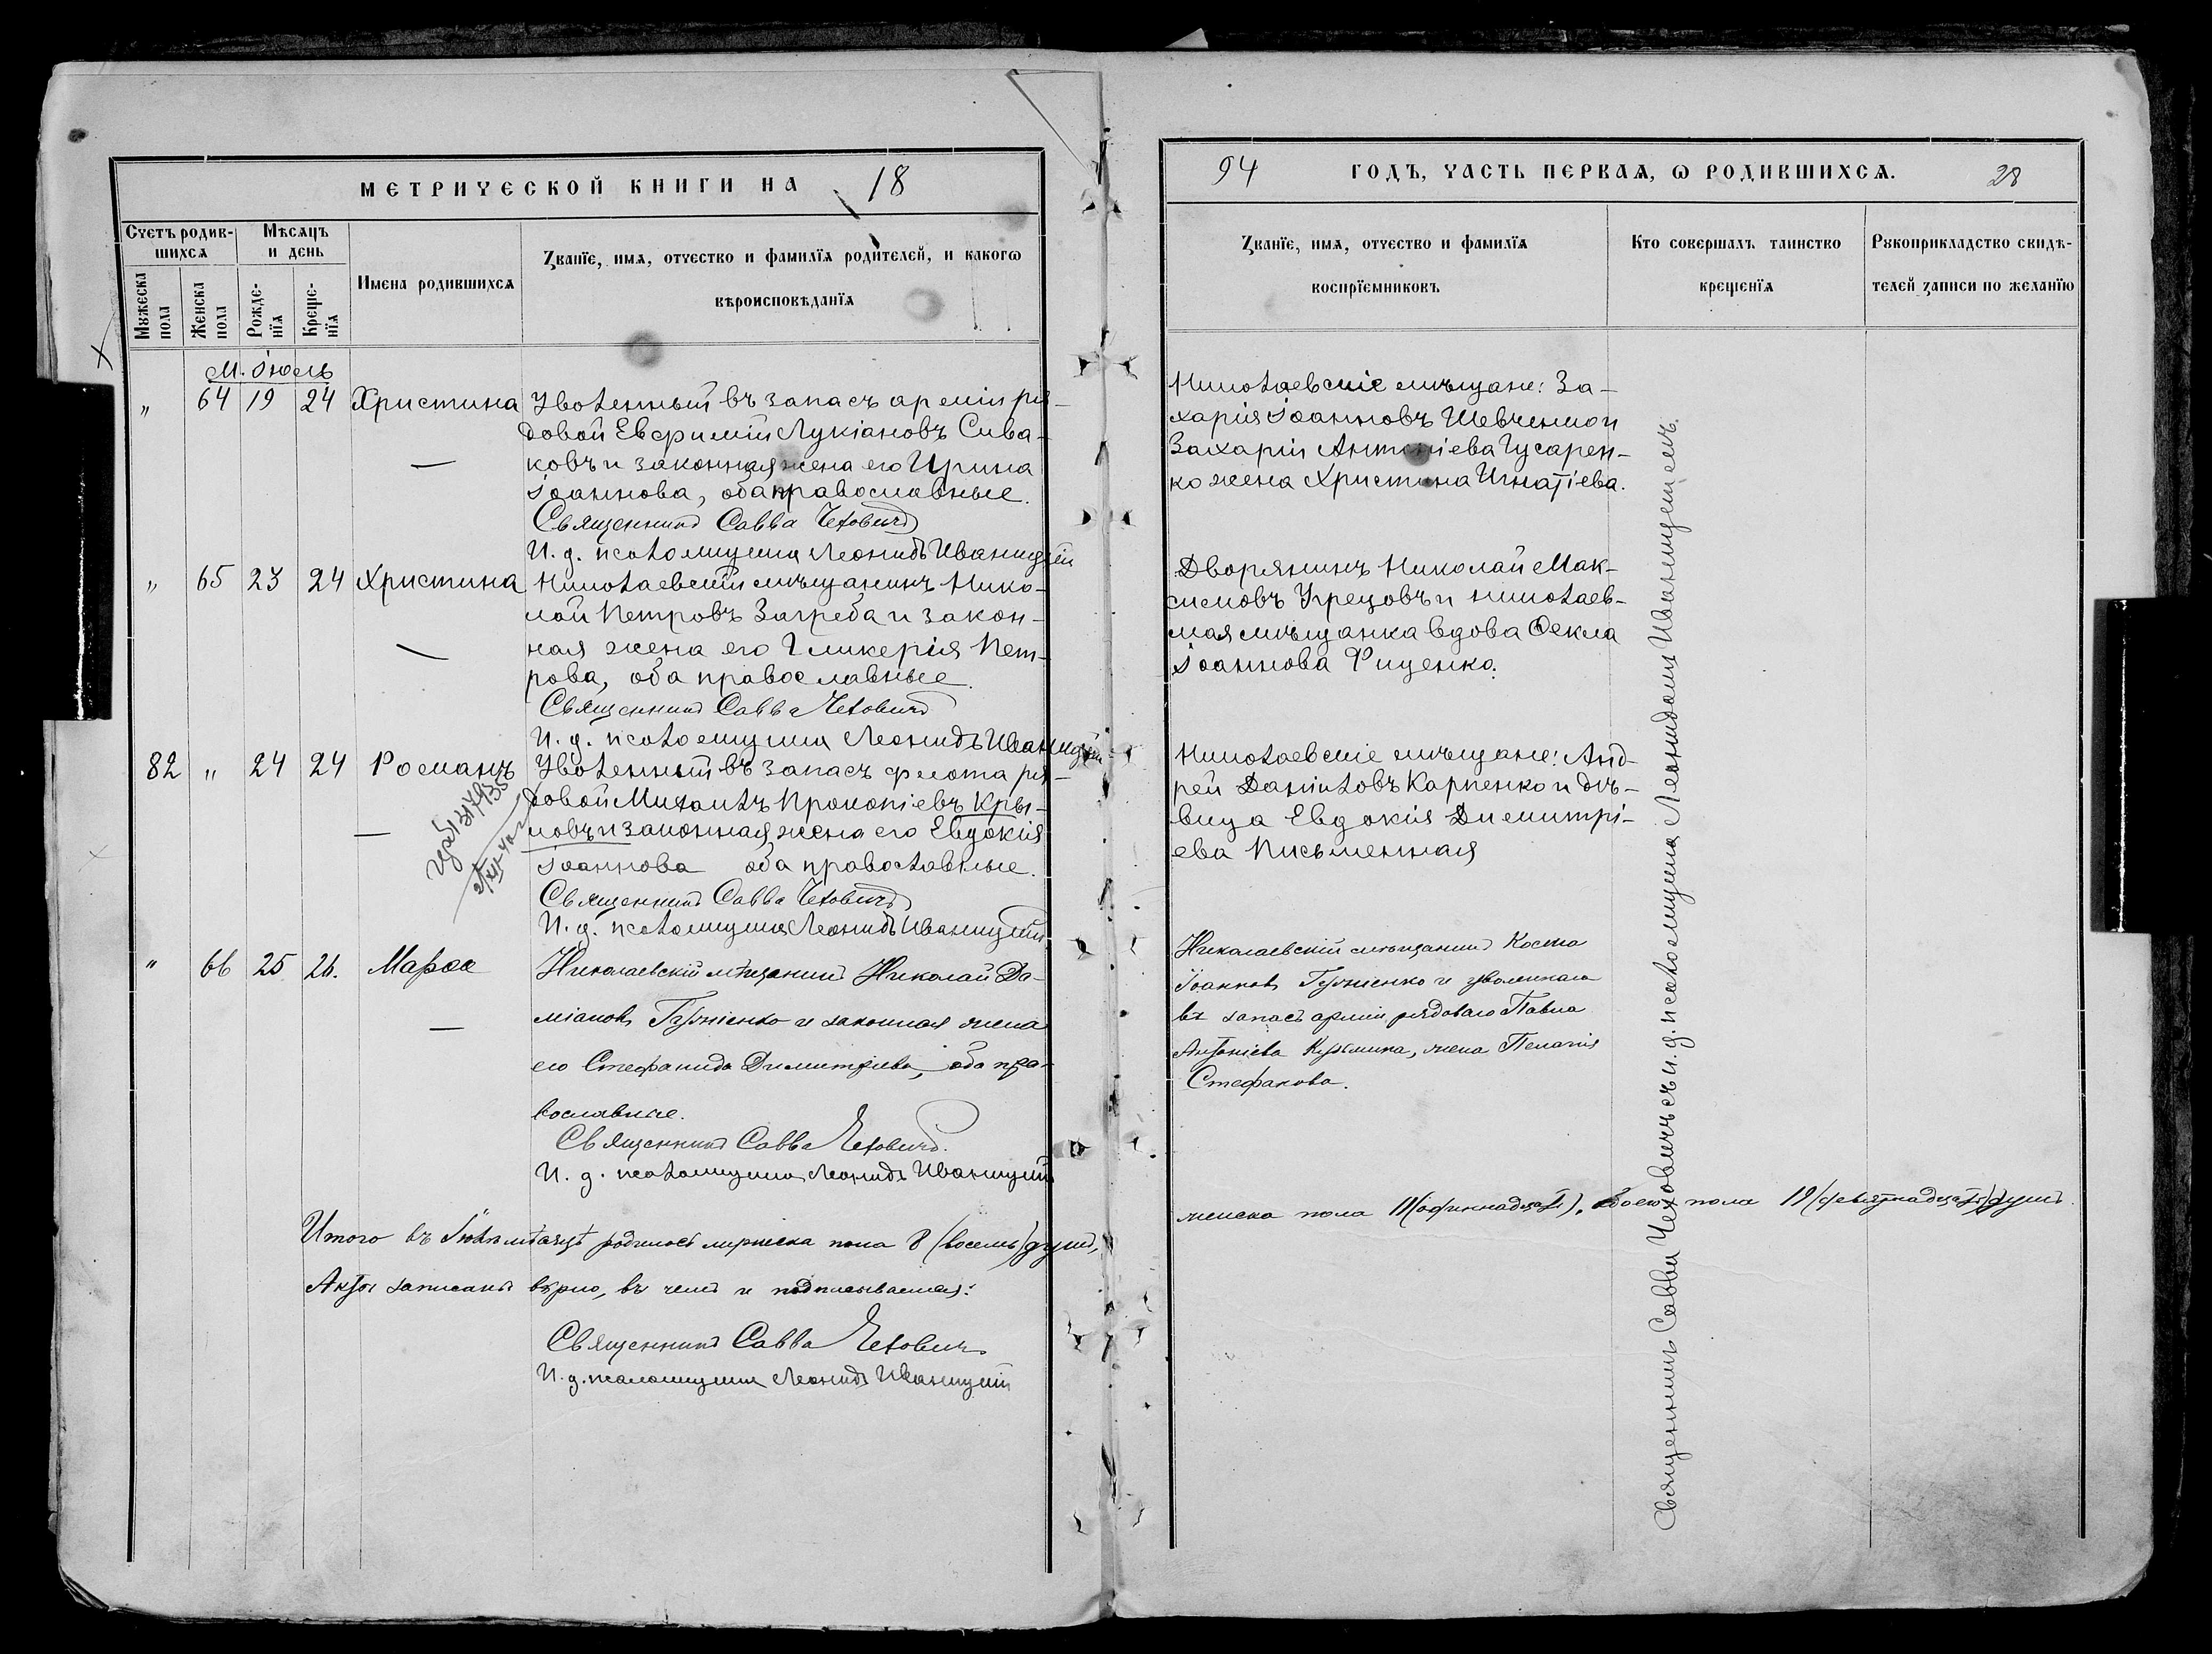 МЕТРИЧЕСКОЙ КНИГИ НА 18
Счетъ родив-
шихся
Мѣсяцъ
и день
Мꙋжеска
пола
Женска
пола
Рожде-
нїя
Креще-
нїя
Имена родившихся
Званїе, имя, отчество и фамилїя родителей, и какогѡ
вѣроисповѣданїя
М. Іюль
" 64 19 24 Христина Уволенный въ запасъ арміи ря-
довой Евфимій Лукіановъ Сива-
ковъ и законная жена его Ирина
Іоаннова, оба православные.
Священникъ Савва Чеховичъ
И. д. псаломщика Леонидъ Иваницкій
" 65 23 24 Христина Николаевскій мѣщанинъ Нико-
лай Петровъ Загреба и закон-
ная жена его Гликерія Пет-
рова, оба православные.
Священникъ Савва Чеховичъ
И. д. псаломщика Леонидъ Иваницкій
82 " 24 24 Романъ Уволенный въ запасъ флота ря-
довой Михаилъ Прокопіевъ Кры-
ловъ и законная жена его Евдокія
Іоаннова оба православные.
Священникъ Савва Чеховичъ
И. д. псаломщика Леонидъ Иваницкій
" 66 25 26. Марѳа Николаевскій мѣщанинъ Николай Да-
міановъ Гурніенко и законная жена
его Стефанида Димитріева, оба пра-
вославные.
Священникъ Савва Чеховичъ.
И. д. псаломщика Леонидъ Иваницкій
Итого въ Іюлѣ мѣсяцѣ родилось мужеска пола 8 (восемь) душъ,
Акты записаны вѣрно, въ чемъ и подписываемся:
Священникъ Савва Чеховичъ
И. д. псаломщика Леонидъ Иваницкій
94 ГОДЪ, ЧАСТЬ ПЕРВАЯ, Ѡ РОДИВШИХСЯ. 28
Званїе, имя, отчество и фамилїя
воспрїемниковъ
Кто совершалъ таинство
крещенїя
Рꙋкоприкладство свидѣ-
телей записи по желанїю
Николаевскіе мѣщане: За-
харія Іоанновъ Шевченко и
Захаріи Антоніева Гусарен-
ко жена Христина Игнатіева.
Дворянинъ Николай Мак-
симовъ Угрецовъ и николаев-
кая мѣщанка вдова Ѳекла
Іоаннова Фиценко.
Николаевскіе мѣщане: Анд-
рей Даніиловъ Карпенко и дѣ-
вица Евдокія Димитрі-
ева Письменная
Николаевскій мѣщанинъ Косма
Іоанновъ Гурніенко и уволеннаго
въ запасъ арміи рядоваго Павла
Антоніева Кузьмика, жена Пелагія
Стефанова.
женска пола 11 (одиннадцать), обоего пола 19 (девятнадцать) душъ
Священникъ Савва Чеховичъ съ и. д. псаломщика Леонидомъ Иваницкимъ.